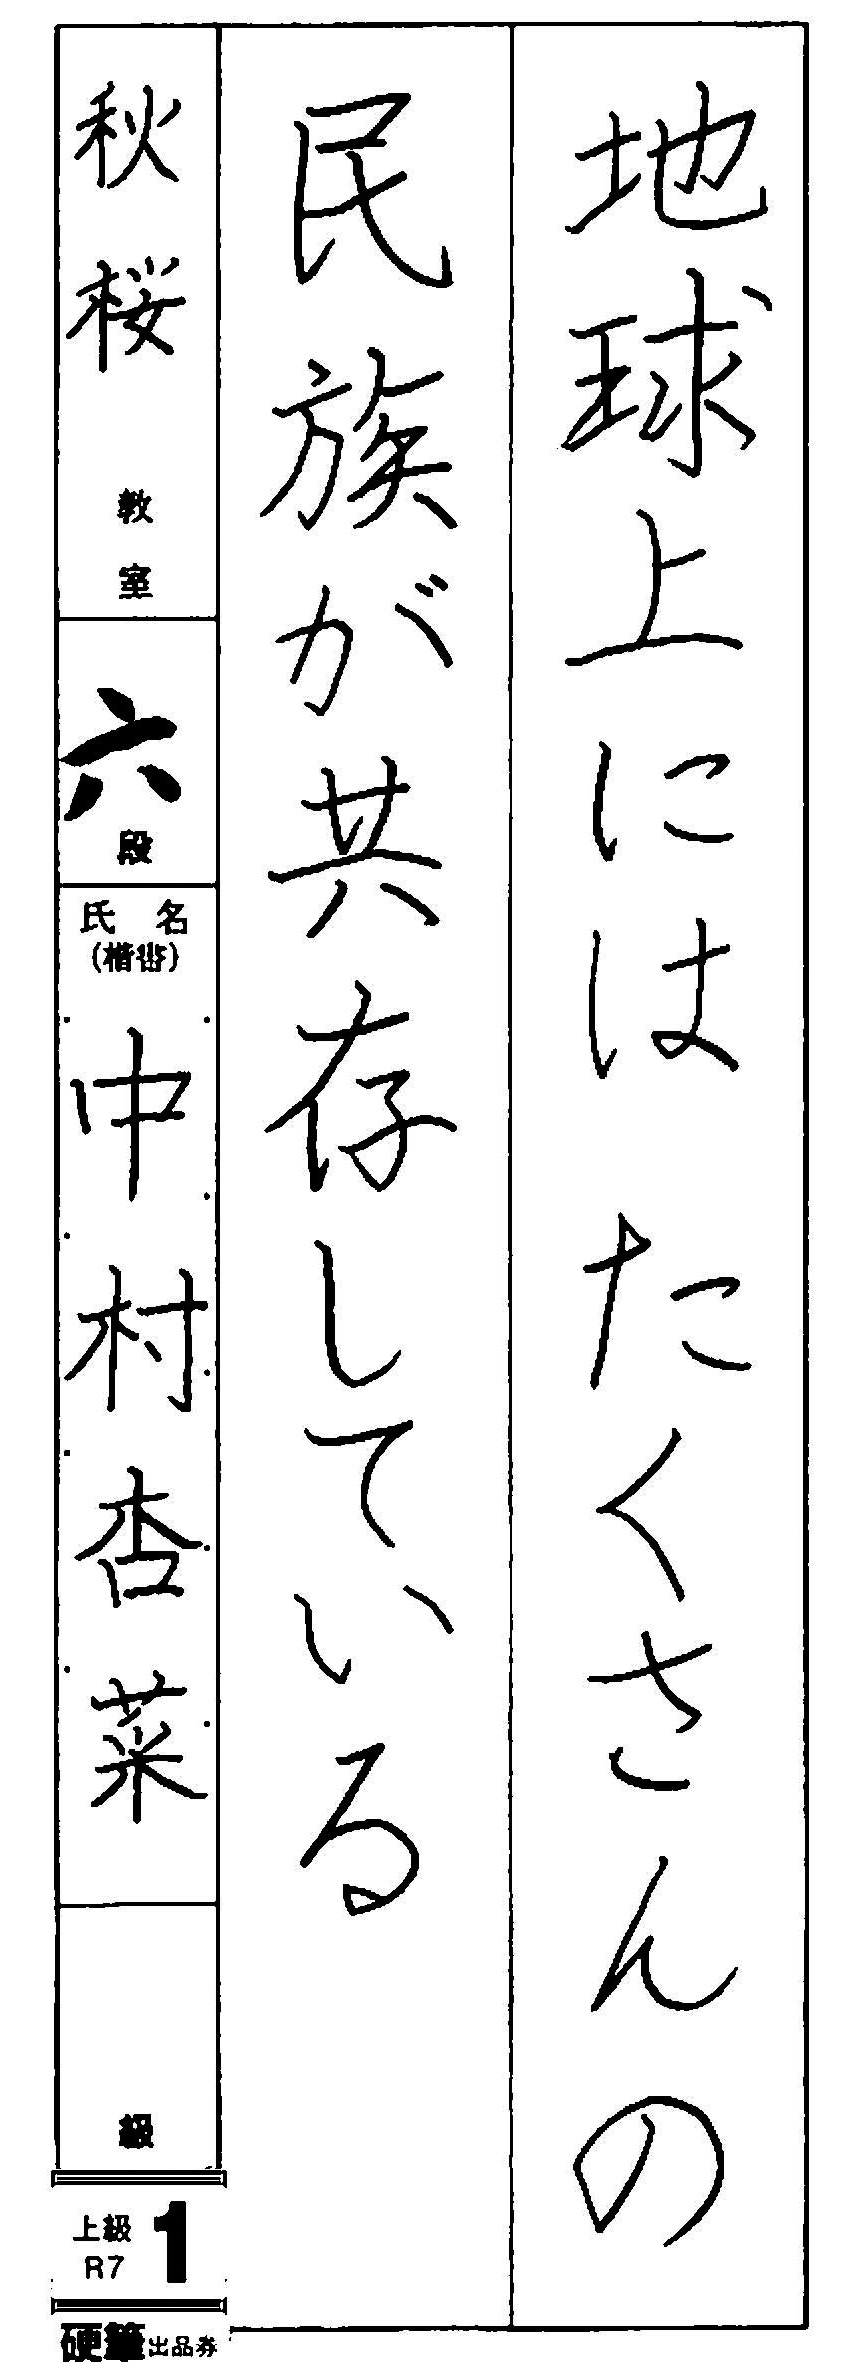 地球上には たくさんの
民族が共存している
秋桜 教室
六 段
氏名
(楷書)
中村杏菜
級
上級 1
R7
硬筆出品券